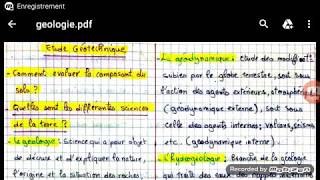 Enregistrement
geologie.pdf
Etude Geotechnique
- Comment évaluer la composant du
solo ?
Quelles sont les differentes sciences
de la terre ?
- La geologie : Science qui a pour objet
de décrire et d'expliquer la nature,
l'origine et la situation des roches;
- La géodynamique : Etude des modificat
subies par le globe terrestre, soit sous
l'action des agents extérieurs, atmosphère
(géodynamique externe), soit sous
celle des agents internes; volcans, seismes,
etc. (geodynamique interne)
- L'hydrogéologie : Branche de la géologie
qui traite des eaux des nappes